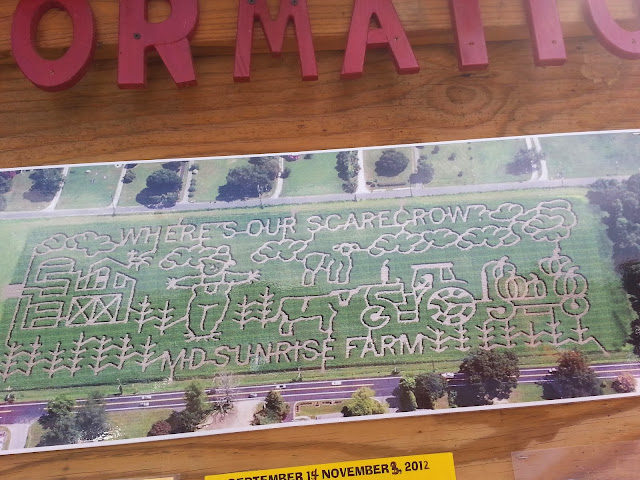 ORMATIO
WHERE'S OUR SCARECROW?
MD SUNRISE FARM
SEPTEMBER 14 NOVEMBER 3, 2012